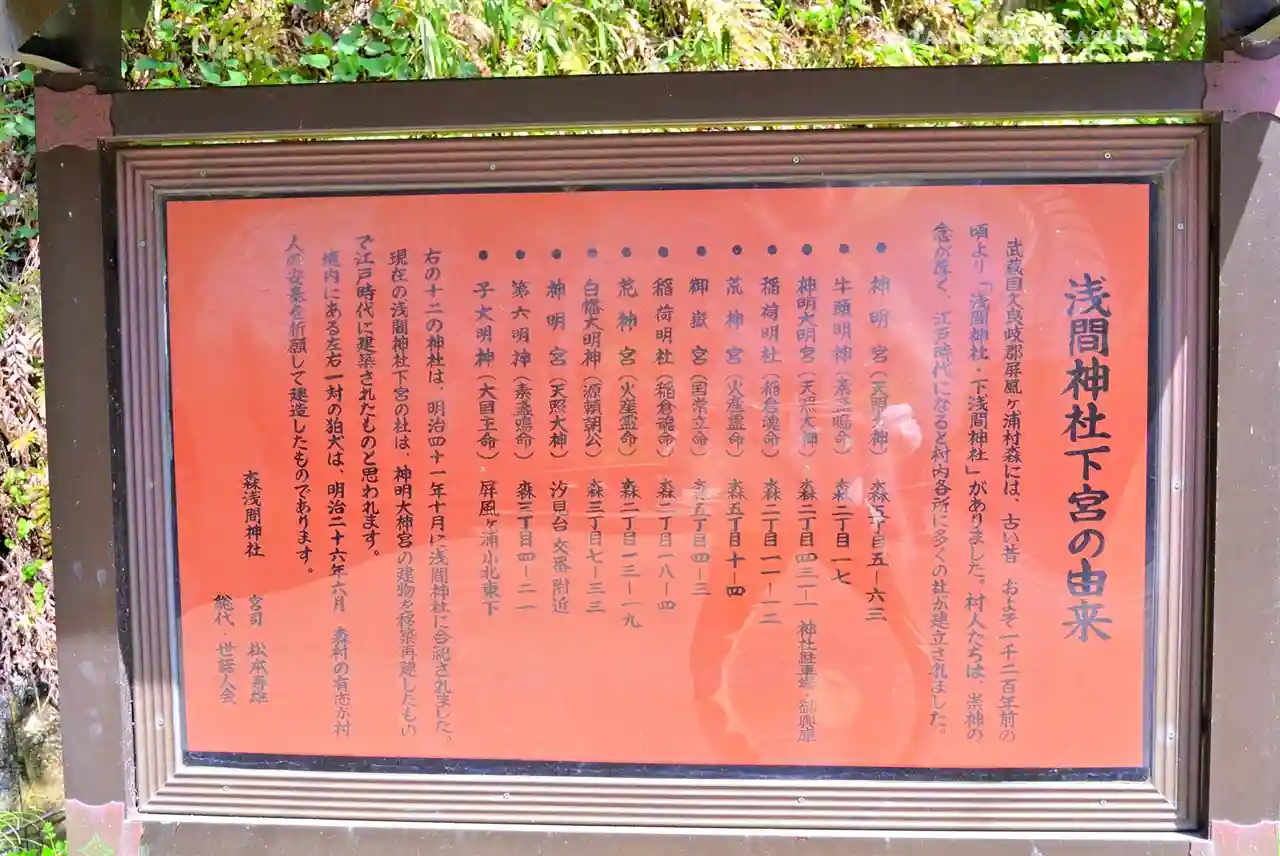 浅間神社下宮の由来
武蔵国久良岐郡屏風ヶ浦村森には、古い昔 およそ一千二百年前の
頃より「浅間神社・下浅間神社」がありました。村人たちは、崇神の
念が厚く、江戸時代になると村内各所に多くの社が建立されました。
● 神明宮（天照大神） 森五丁目五ー六三
● 牛頭明神（素盞鳴命） 森二丁目一七
● 神明大明宮（天照大神） 森二丁目四三ー一 神社駐車場・御興庫
● 稲荷明社（稲倉魂命） 森二丁目一一ー一二
● 荒神宮（火産霊命） 森五丁目十ー四
● 御嶽宮（国常立命） 森五丁目四ー三
● 稲荷明社（稲倉魂命） 森二丁目一八ー四
● 荒神宮（火産霊命） 森二丁目一三ー一九
● 白幡大明神（源頼朝公） 森三丁目七ー三三
● 神明宮（天照大神） 汐見台 交番附近
● 第六明神（素盞鳴命） 森三丁目四ー二一
● 子大明神（大国主命） 屏風ヶ浦小北東下
右の十二の神社は、明治四十一年十月に浅間神社に合祀されました。
現在の浅間神社下宮の社は、神明大神宮の建物を移築再建したもの
で江戸時代に建築されたものと思われます。
境内にある左右一対の狛犬は、明治二十六年六月 森村の有志が村
人の安泰を祈願して建造したものであります。
森浅間神社 宮司 松本
総代・世話人会